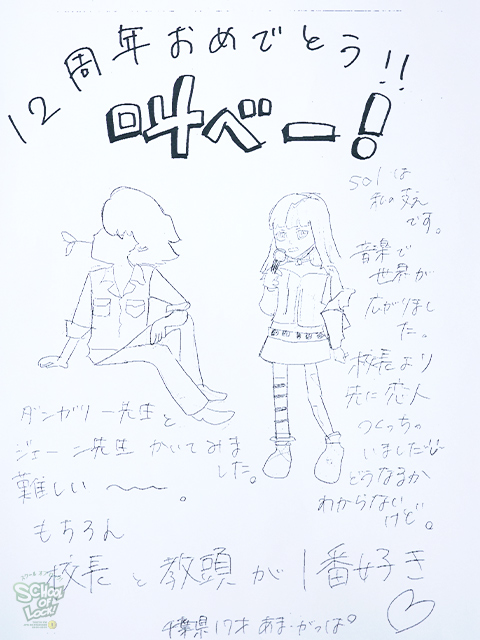 12周年おめでとう!!
叫べー!
solは
私の支え
です。
音楽で
世界が
広がりまし
た。
校長より
先に恋人
つくっちゃ
いました
どうなるか
わからない
けど。
ダンガリー先生と
ジェーン先生 かいてみま
した。
難しい〜。
もちろん
校長と教頭が1番好き
千葉県 17才 あま・がっぱ。
SCHOOL
OF
LOCK!